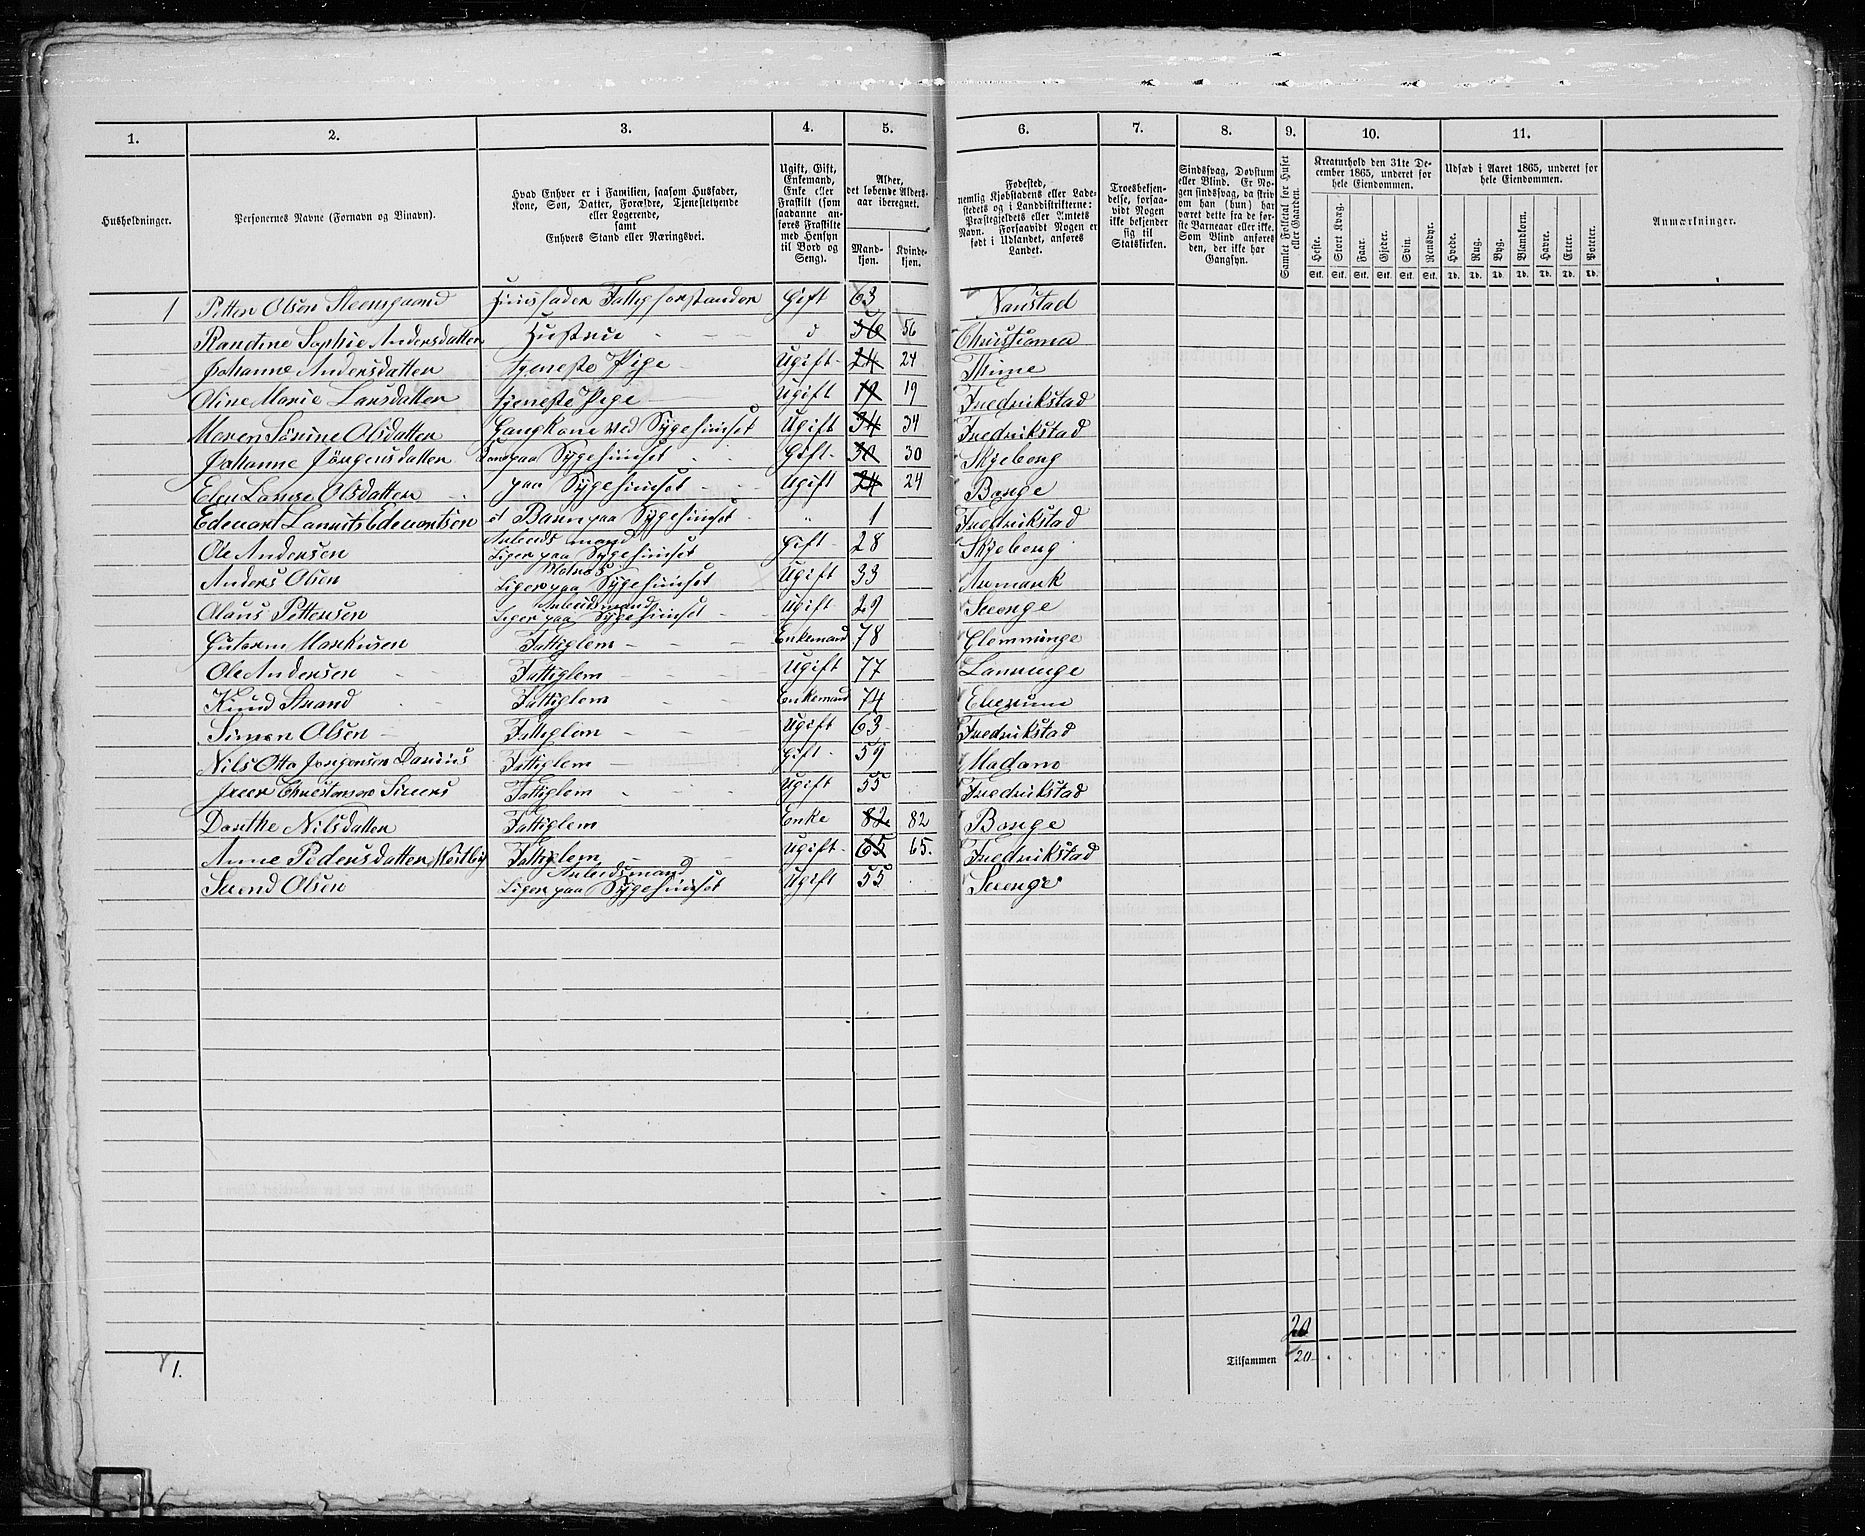 1. 2. 3. 4. 5. 6. 7. 8. 9. 10. 11.
Husholdninger.
Personernes Navne (Fornavn og Binavn).
Hvad Enhver er i Familien, saasom Husfader, Kone, Søn, Datter, Forældre, Tjenestetyende eller Logerende, samt Enhvers Stand eller Næringsvei.
Ugift, Gift, Enkemand, Enke eller Fraskilt (som saadanne anføres Fraskilte med Hensyn til Bord og Seng).
Alder, det løbende Aldersaar iberegnet.
Mandkjøn. Kvindekjøn.
Fødested, nemlig Kjøbstadens eller Ladestedets og i Landdistrikterne: Præstegjeldets eller Amtets Navn. Forsaavidt Nogen er født i Udlandet, anføres Landet.
Troesbekjendelse, forsaavidt Nogen ikke bekjender sig til Statskirken.
Sindssvag, Døvstum eller Blind. Er Nogen sindssvag, da skrives om han (hun) har været dette fra de første Barneaar eller ikke. Som Blind anføres den, der ikke har Gangsyn.
Samlet Folketal for Huset eller Gaarden.
Kreaturhold den 31te December 1865, underet for hele Eiendommen.
Heste. Stort Kvæg. Faar. Gjeder. Svin. Rensdyr.
Stk. Stk. Stk. Stk. Stk. Stk.
Udsæd i Aaret 1865, underet for hele Eiendommen.
Hvede. Rug. Byg. Blandkorn. Havre. Erter. Poteter.
Td. Td. Td. Td. Td. Td. Td.
Anmærkninger.
1 Petter Olsen Steensgaard Huusfader Fattigforstander Gift 63 Nanstad
Randine Sophie Andersdatter Hustrue d 56 56 Christiania
Johanne Andersdatter tjeneste Pige Ugift 24 24 Thime
Oline Marie Larsdatter tjeneste Pige Ugift 19 19 Fredrikstad
Maren Sørine Olsdatter Gangkone ved Sygehuuset Ugift 34 34 Fredrikstad
Johanne Jörgensdatter paa Sygehuuset Gift 30 30 Skjeberg
Elen Lovise Olsdatter paa Sygehuuset Ugift 24 24 Borge
Edevart Lauritz Edevartsen et Barn paa Sygehuuset " 1 Fredrikstad
Ole Andersen Arbeidsmand Liger paa Sygehuuset Gift 28 Skjeberg
Anders Olsen Matros Liger paa Sygehuuset Ugift 33 Aremark
Olaus Pettersen Arbeidsmand Liger paa Sygehuuset Ugift 29 Svenge
Gutorm Markusen Fattiglem Enkemand 78 Glemminge
Ole Andersen Fattiglem Ugift 77 Laurvige
Knud Strand Fattiglem Enkemand 74 Elverum
Simen Olsen Fattiglem Ugift 63 Fredrikstad
Nils Otto Jorgensen Darius Fattiglem Gift 59 Madam
Iver Christensen Sivers Fattiglem Ugift 55 Fredrikstad
Dorthe Nilsdatter Fattiglem Enke 82 82 Borge
Anne Pedersdatter Westby Fattiglem Ugift 65 65. Fredrikstad
Svend Olsen Arbeidsmand Liger paa Sygehuuset Ugift 55 Svenge
20
1. Tilsammen 20